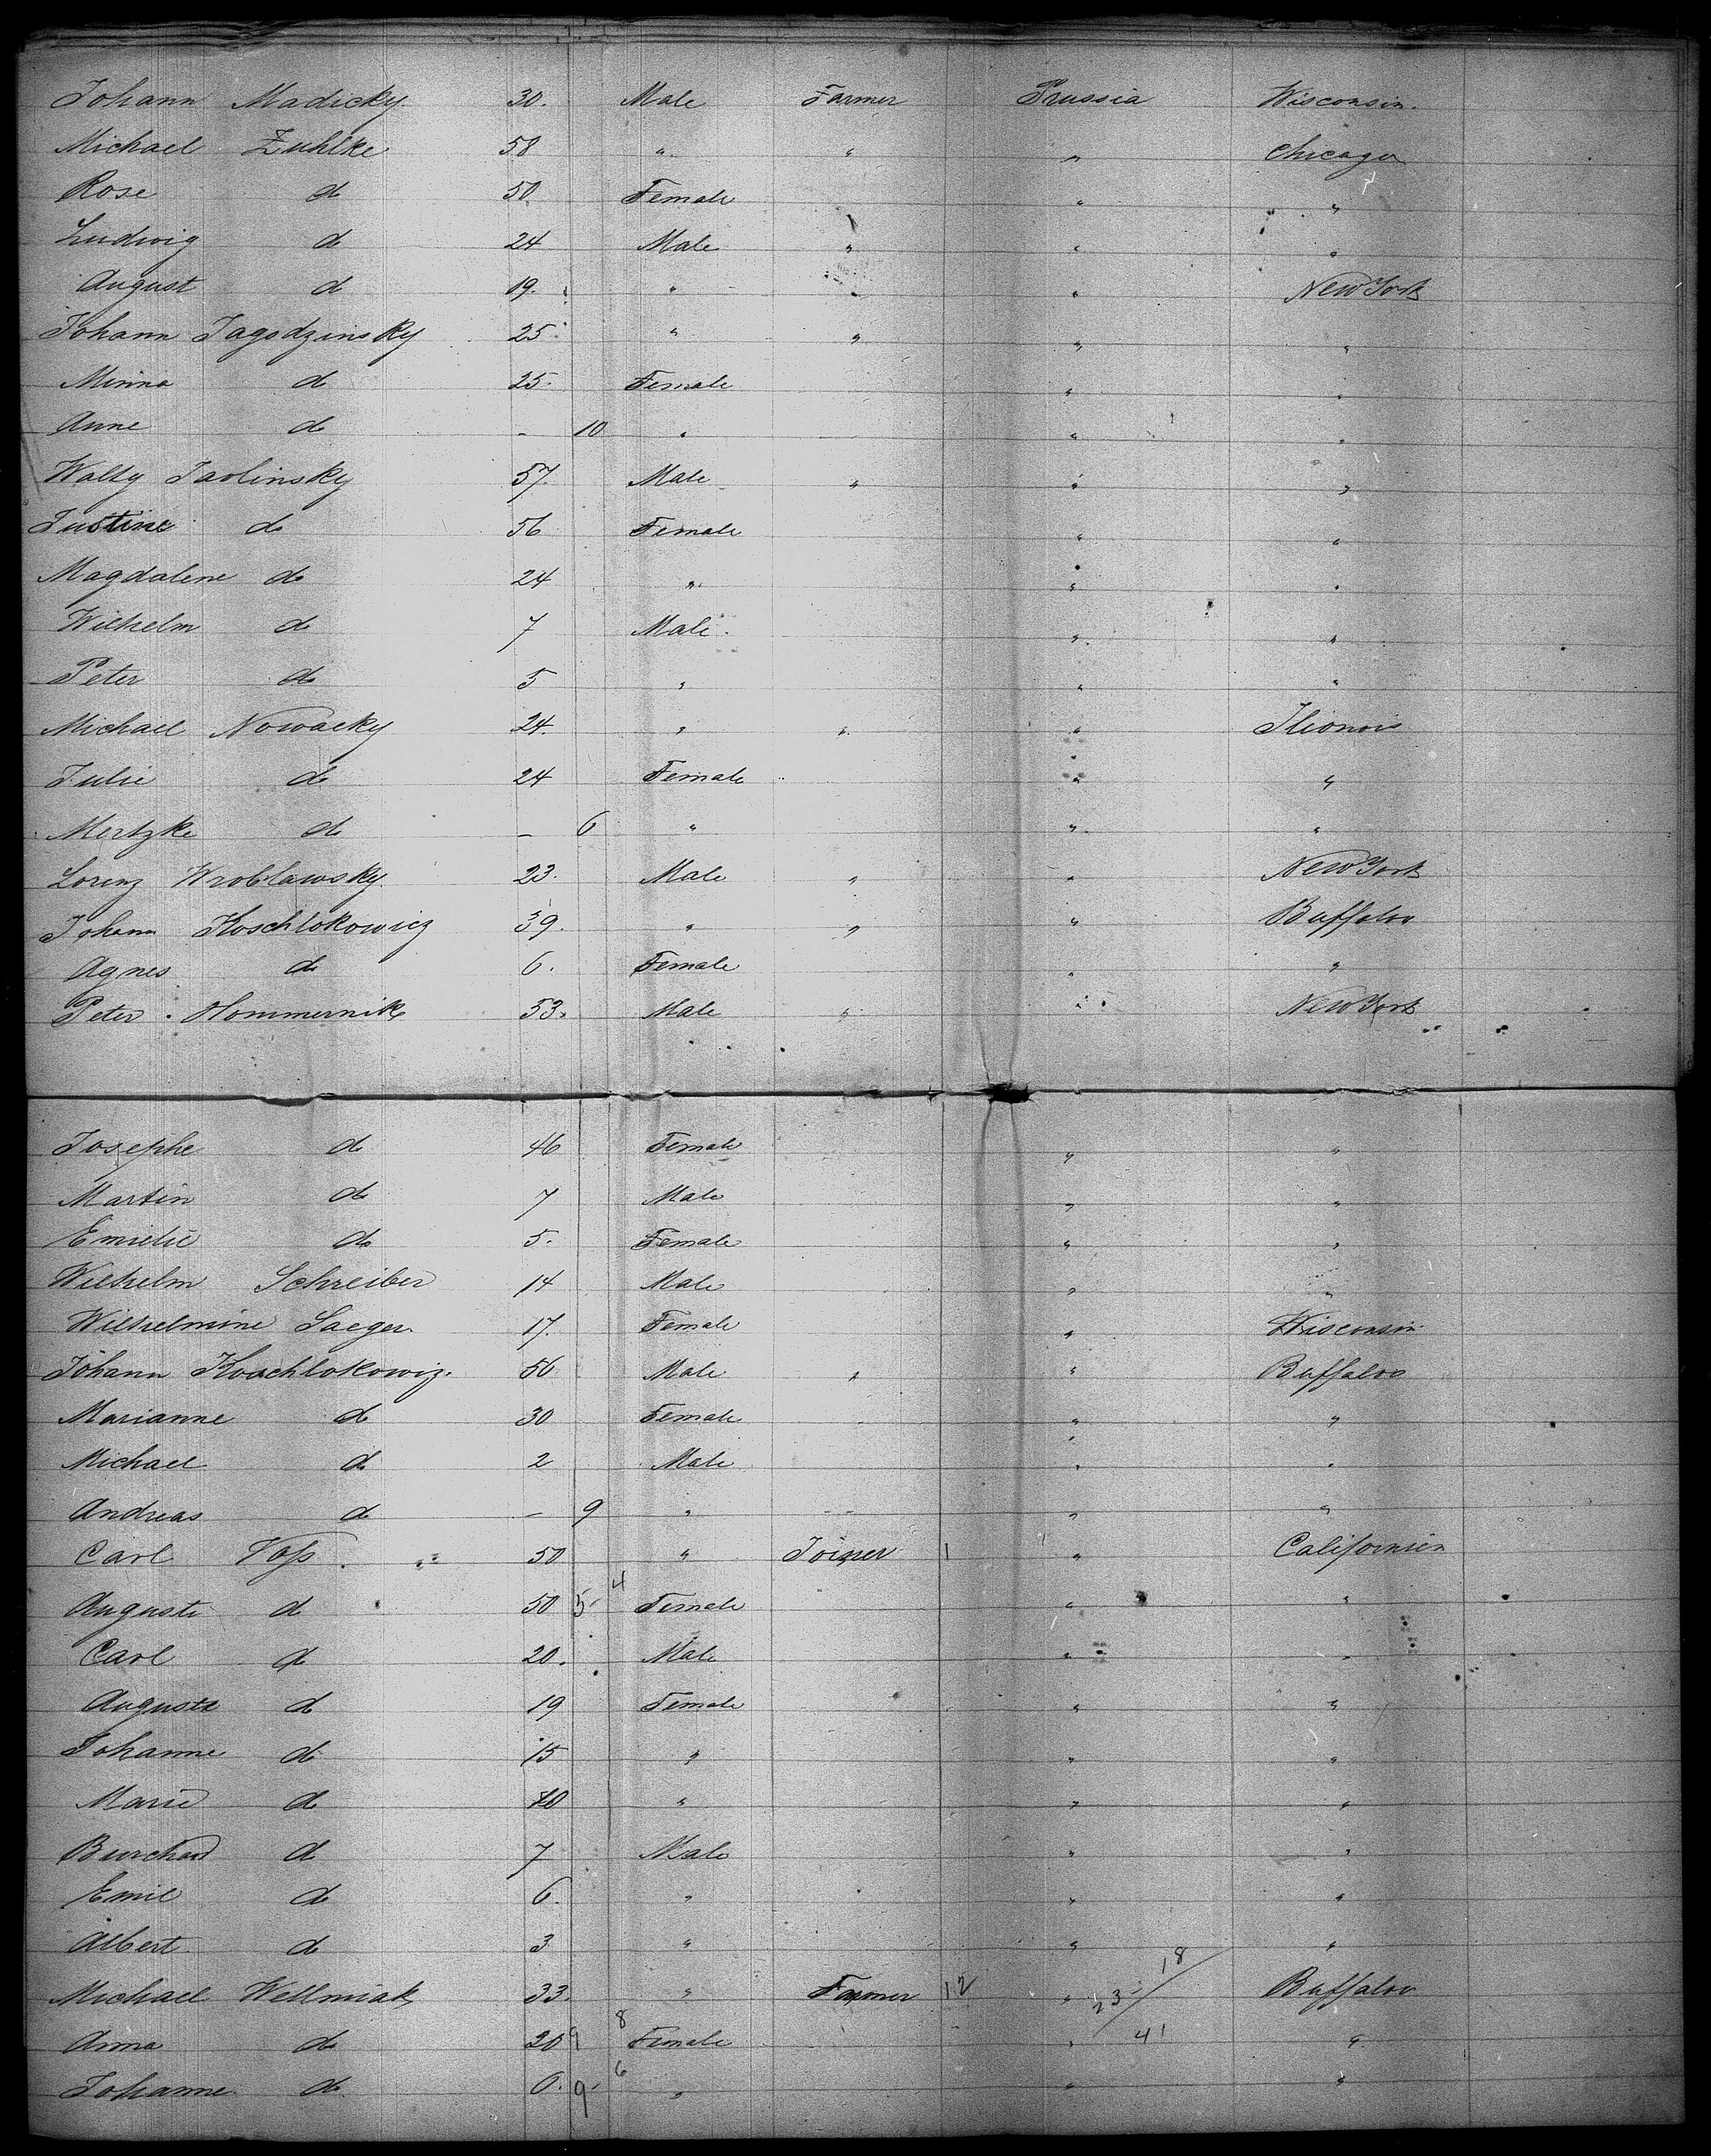 Johann Madicky 30. Male Farmer Prussia Wisconsin.
Michael Zuhlke 58 " " " Chicago
Rose do 50 Female " "
Ludwig do 24 Male " " "
August do 19. " " " New York
Johann Jagodzinsky 25. " " " "
Minna do 25. Female " "
Anne do - 10 " " "
Walty Jaolinsky 57. Male " " "
Justine do 56 Female " "
Magdalene do 24 " " "
Wilhelm do 7 Male. " "
Peter do 5 " " "
Michael Nowacky 24. " " " Ilionois
Julie do 24 Female " "
Mertzke do - 6 " " "
Lorenz Wroblawsky. 23. Male " " New York
Johann Koschlokowicz 39. " " " Buffaloo
Agnes do 6. Female " "
Peter Hommernik 53. Male " " New York
Josephe do 46 Female " "
Martin do 7 Male " "
Emilie do 5. Female " "
Wilhelm Schreiber 14 Male " "
Wilhelmine Saeger. 17. Female " Wisconsin
Johann Koschlokowiz. 56 Male " " Buffaloo
Marianne do 30 Female " "
Michael do 2 Male " "
Andreas do - 9 " " "
Carl Voss 50 " Joiner 1 " Californien
Auguste do 50 5- 4 Female " "
Carl do 20. Male " "
Augusta do 19 Female " "
Johanne do 15 " " "
Marie do 10 " " "
Burchard do 7 Male " "
Emil do 6. " " "
Albert do 3 " " "
Michael Wellmiak 33. " Farmer 12 " 23 / 18 Buffaloo
Anna do 20 9 8 Female " 41 "
Johanne do 6. 9- 6 " " "